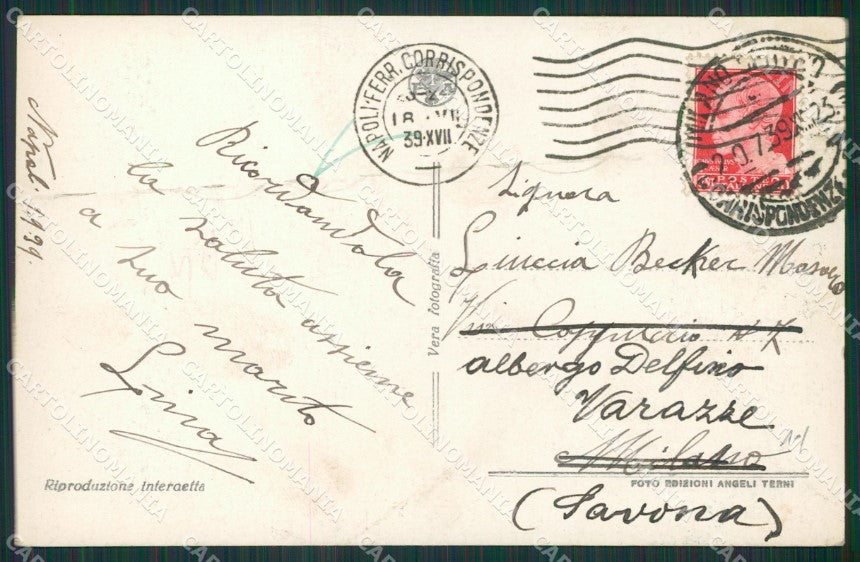 Napoli 1939
Ricordandola
la saluta assieme
a suo marito
Lina
Riproduzione interdetta
Vera fotografia
NAPOLI·FERR. CORRISPONDENZE
18 VII
39·XVII
MILANO
20.7.39
CORRISPONDENZE
POSTE
Signora
Becker
Via Cappuccio N 7
albergo Delfino
Varazze
Milano
FOTO EDIZIONI ANGELI TERNI
(Savona)
CARTOLINOMANIA